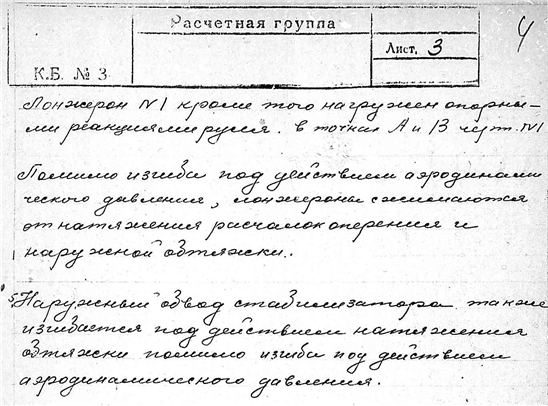 4
Расчетная группа
Лист. 3
К.Б. № 3
Лонжерон N1 кроме того нагружен опорны-
ми реакциями руля. в точках А и В черт. N1
Помимо изгиба под действием аэродинами
ческого давления, лонжероны сжимаются
от натяжения расчалок оперения и
наружной обтяжки.
Наружный обвод стабилизатора также
изгибается под действием натяжения
обтяжки помимо изгиба под действием
аэродинамического давления.